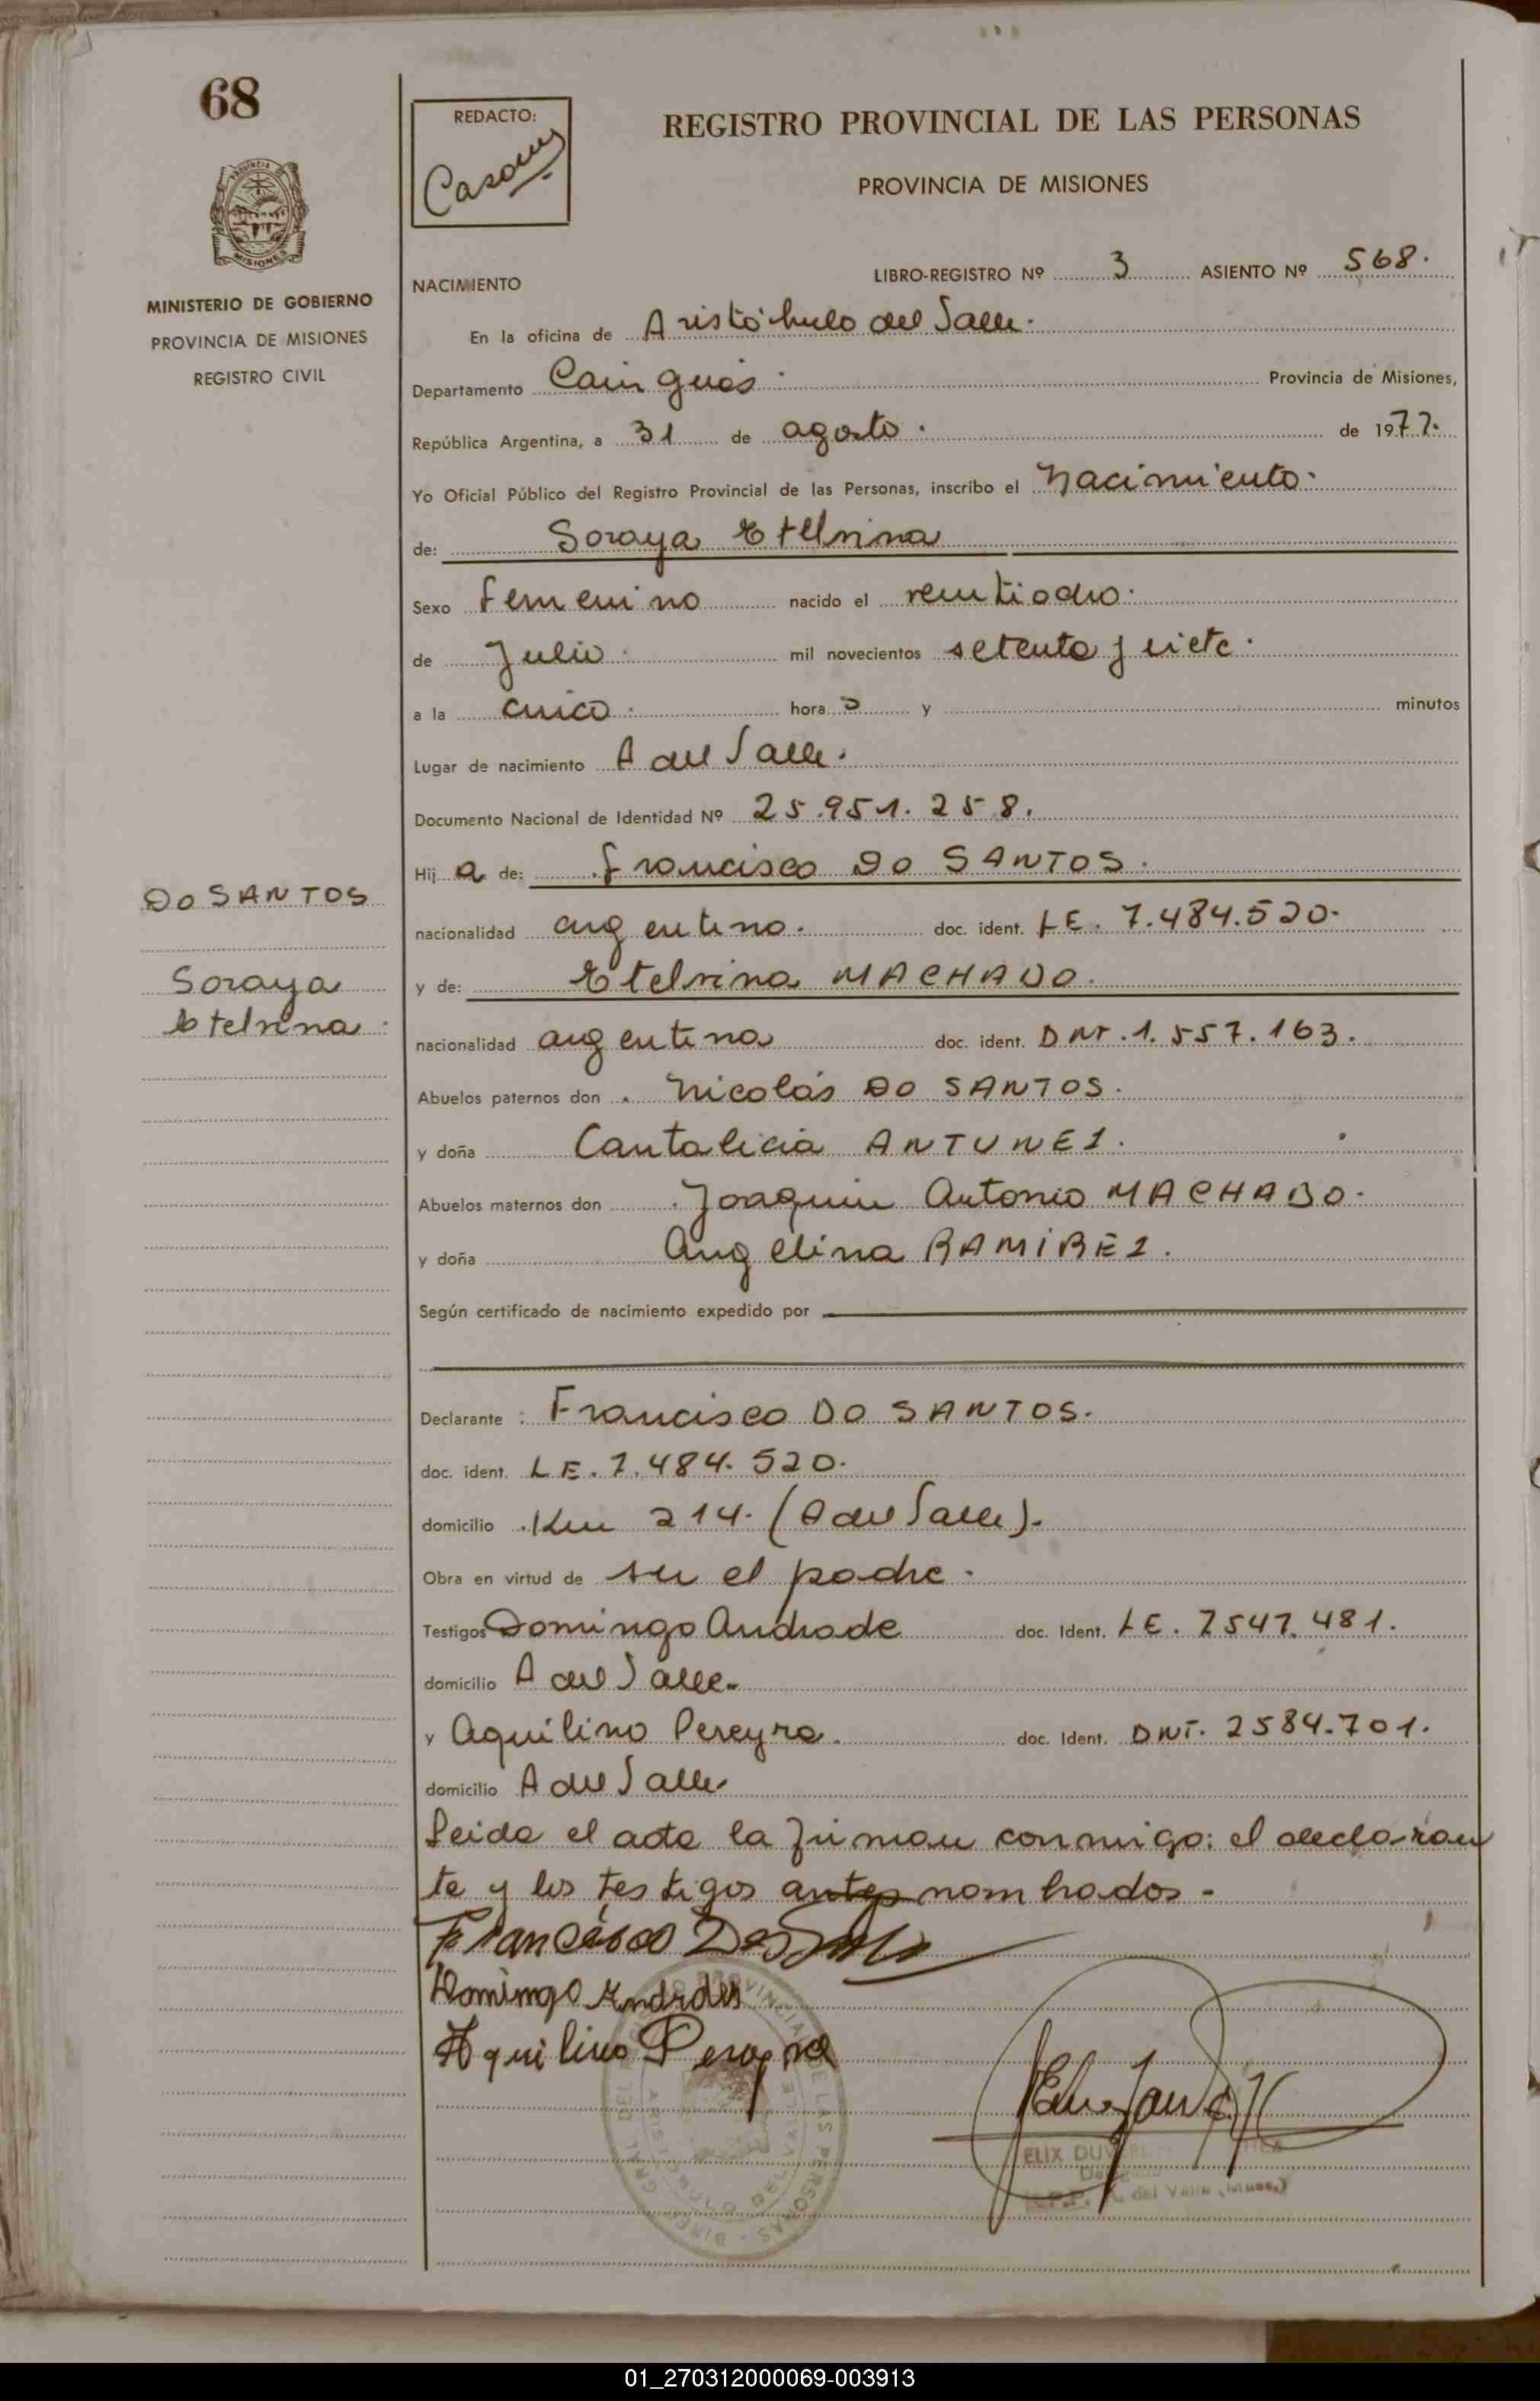 68
REDACTO:
REGISTRO PROVINCIAL DE LAS PERSONAS
PROVINCIA DE MISIONES
PROVINCIA
MISIONES
MINISTERIO DE GOBIERNO
PROVINCIA DE MISIONES
REGISTRO CIVIL
NACIMIENTO LIBRO-REGISTRO Nº 3 ASIENTO Nº 568.
En la oficina de Aristóbulo del Valle.
Departamento Cainguás. Provincia de Misiones,
República Argentina, a 31 de agosto. de 1977.
Yo Oficial Público del Registro Provincial de las Personas, inscribo el Nacimiento.
de: Soraya Etelvina
Sexo Femenino nacido el veintiocho.
de Julio. mil novecientos setenta y siete.
a la cinco. hora s y minutos
Lugar de nacimiento A del Valle.
Documento Nacional de Identidad Nº 25.951.258.
Hij a de: Francisco DO SANTOS.
nacionalidad argentino. doc. ident. LE. 7.484.520.
y de: Etelvina MACHADO.
nacionalidad argentina doc. ident. DNI. 1.557.163.
DO SANTOS
Soraya
Etelvina.
Abuelos paternos don Nicolás DO SANTOS.
y doña Cantalicia ANTUNEZ.
Abuelos maternos don Joaquin Antonio MACHADO.
y doña Angélina RAMIREZ.
Según certificado de nacimiento expedido por
Declarante : Francisco DO SANTOS.
doc. ident. LE. 7.484.520.
domicilio Km 214. (A del Valle).
Obra en virtud de ser el padre.
Testigos Domingo Andrade doc. Ident. LE. 7547.481.
domicilio A del Valle.
y Aquilino Pereyra. doc. Ident. DNI. 2584.701.
domicilio A del Valle
Leida el acta la firman conmigo: el declaran
te y los testigos antes nombrados.
Francisco
Domingo
Aquilino Pereyra
ELIX
del Valle (Mnes.)
01_270312000069-003913